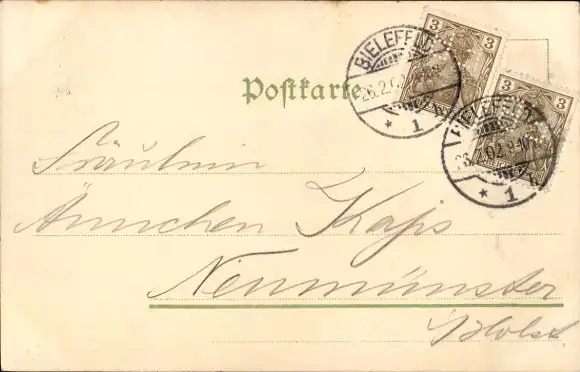 3
3
BIELEFELD
26.2.02.9-10V.
* 1
BIELEFELD
26.2.02.9-10V.
* 1
Postkarte
Fräulein
Ännchen Kaps
Neumünster
i/Holst.